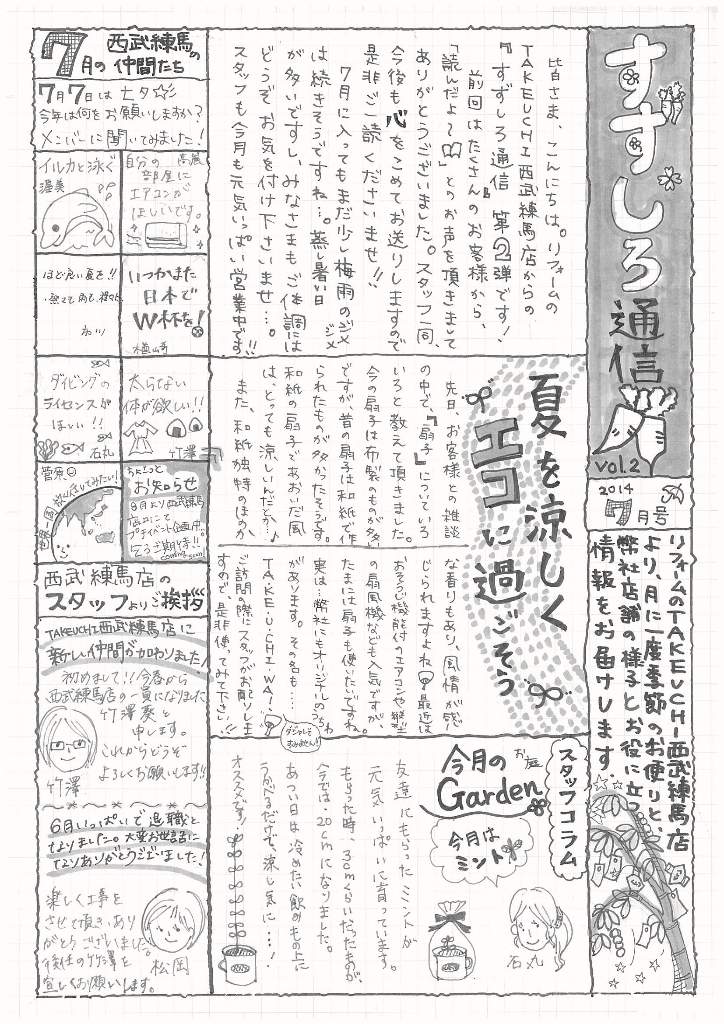 すずしろ通信
vol.2
2014
7月号
リフォームのTAKEUCHI西武練馬店
より、月に一度季節のお便りと、
弊社店舗の様子とお役に立つ
情報をお届けします
皆さま、こんにちは。リフォームの
TAKEUCHI西武練馬店からの
『すずしろ通信 第2弾です!
前回はたくさんのお客様から、
「読んだよ～」とのお声を頂きまして
ありがとうございました。スタッフ一同、
今後も心をこめてお送りしますので
是非ご一読くださいませ!!
7月に入ってもまだ少し梅雨のジメジメ
は続きそうですね…。蒸し暑い日
が多いですし、みなさまもご体調には
どうぞお気を付け下さいませ…。
スタッフも今月も元気いっぱい営業中です!!
夏を涼しく
エコに過ごそう
先日、お客様との雑談
の中で、『扇子』についていろ
いろと教えて頂きました。
今の扇子は布製のものが多い
ですが、昔の扇子は和紙で作
られたものが多かったそうです。
和紙の扇子であおいだ風
は、とっても涼しいんだとか♪
また、和紙独特のほのか
な香りもあり、風情が感
じられますよね。最近は
おそうじ機能付のエアコンや縦型
の扇風機なども人気ですが、
たまには扇子も使いたいですね。
実は…弊社にもオリジナルのうちわ
があります。その名も…
TA・KE・U・CHI・WA!
ご訪問の際にスタッフがお配りしま
すので、是非使ってみて下さい!!
ダジャレで
すみません!
スタッフコラム
今月の
お庭
Garden
今月は
ミント
石丸
友達にもらったミントが
元気いっぱいに育っています。
もらった時、3cmくらいだったものが、
今では、20cmになりました。
あつい日は冷めたい飲みもの上に
うかべるだけで、涼し気に…!
オススメです!
7月の
西武練馬の
仲間たち
7月7日は七夕☆
今年は何をお願いしますか?
メンバーに聞いてみました!
イルカと泳ぐ
渥美
自分の
部屋に
エアコンが
ほしいです。
高嶌
ほど良い夏を!!
いつかまた
日本で
W杯を!
楢山奇
ダイビングの
ライセンスが
ほしい!!
石丸
太らない
体が欲しい!!
竹澤
菅原
ちょこっと
お知らせ
8月より西武練馬
店において
プチイベント企画中…
乞うご期待!!
coming soon
西武練馬店の
スタッフよりご挨拶
TAKEUCHI西武練馬店に
新しい仲間が加わりました!
初めまして!!今春から
西武練馬店の一員になりました
竹澤葵と
申します。
これからどうぞ
よろしくお願いします!!
竹澤
6月いっぱいで退職と
なりました。大変お世話に
なりありがとうございました!
楽しく工事を
させて頂き、あり
がとうございました。
後任の竹澤を
宜しくお願いします。
松岡